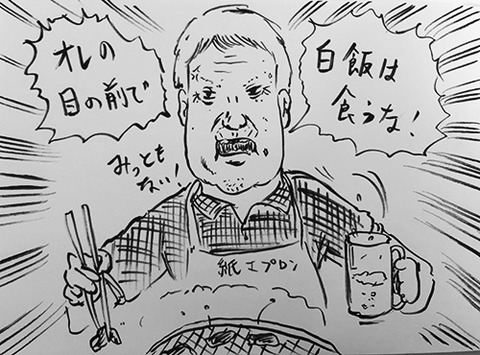 オレの
目の前で
白飯は
食うな!
みっとも
ない!
紙エプロン